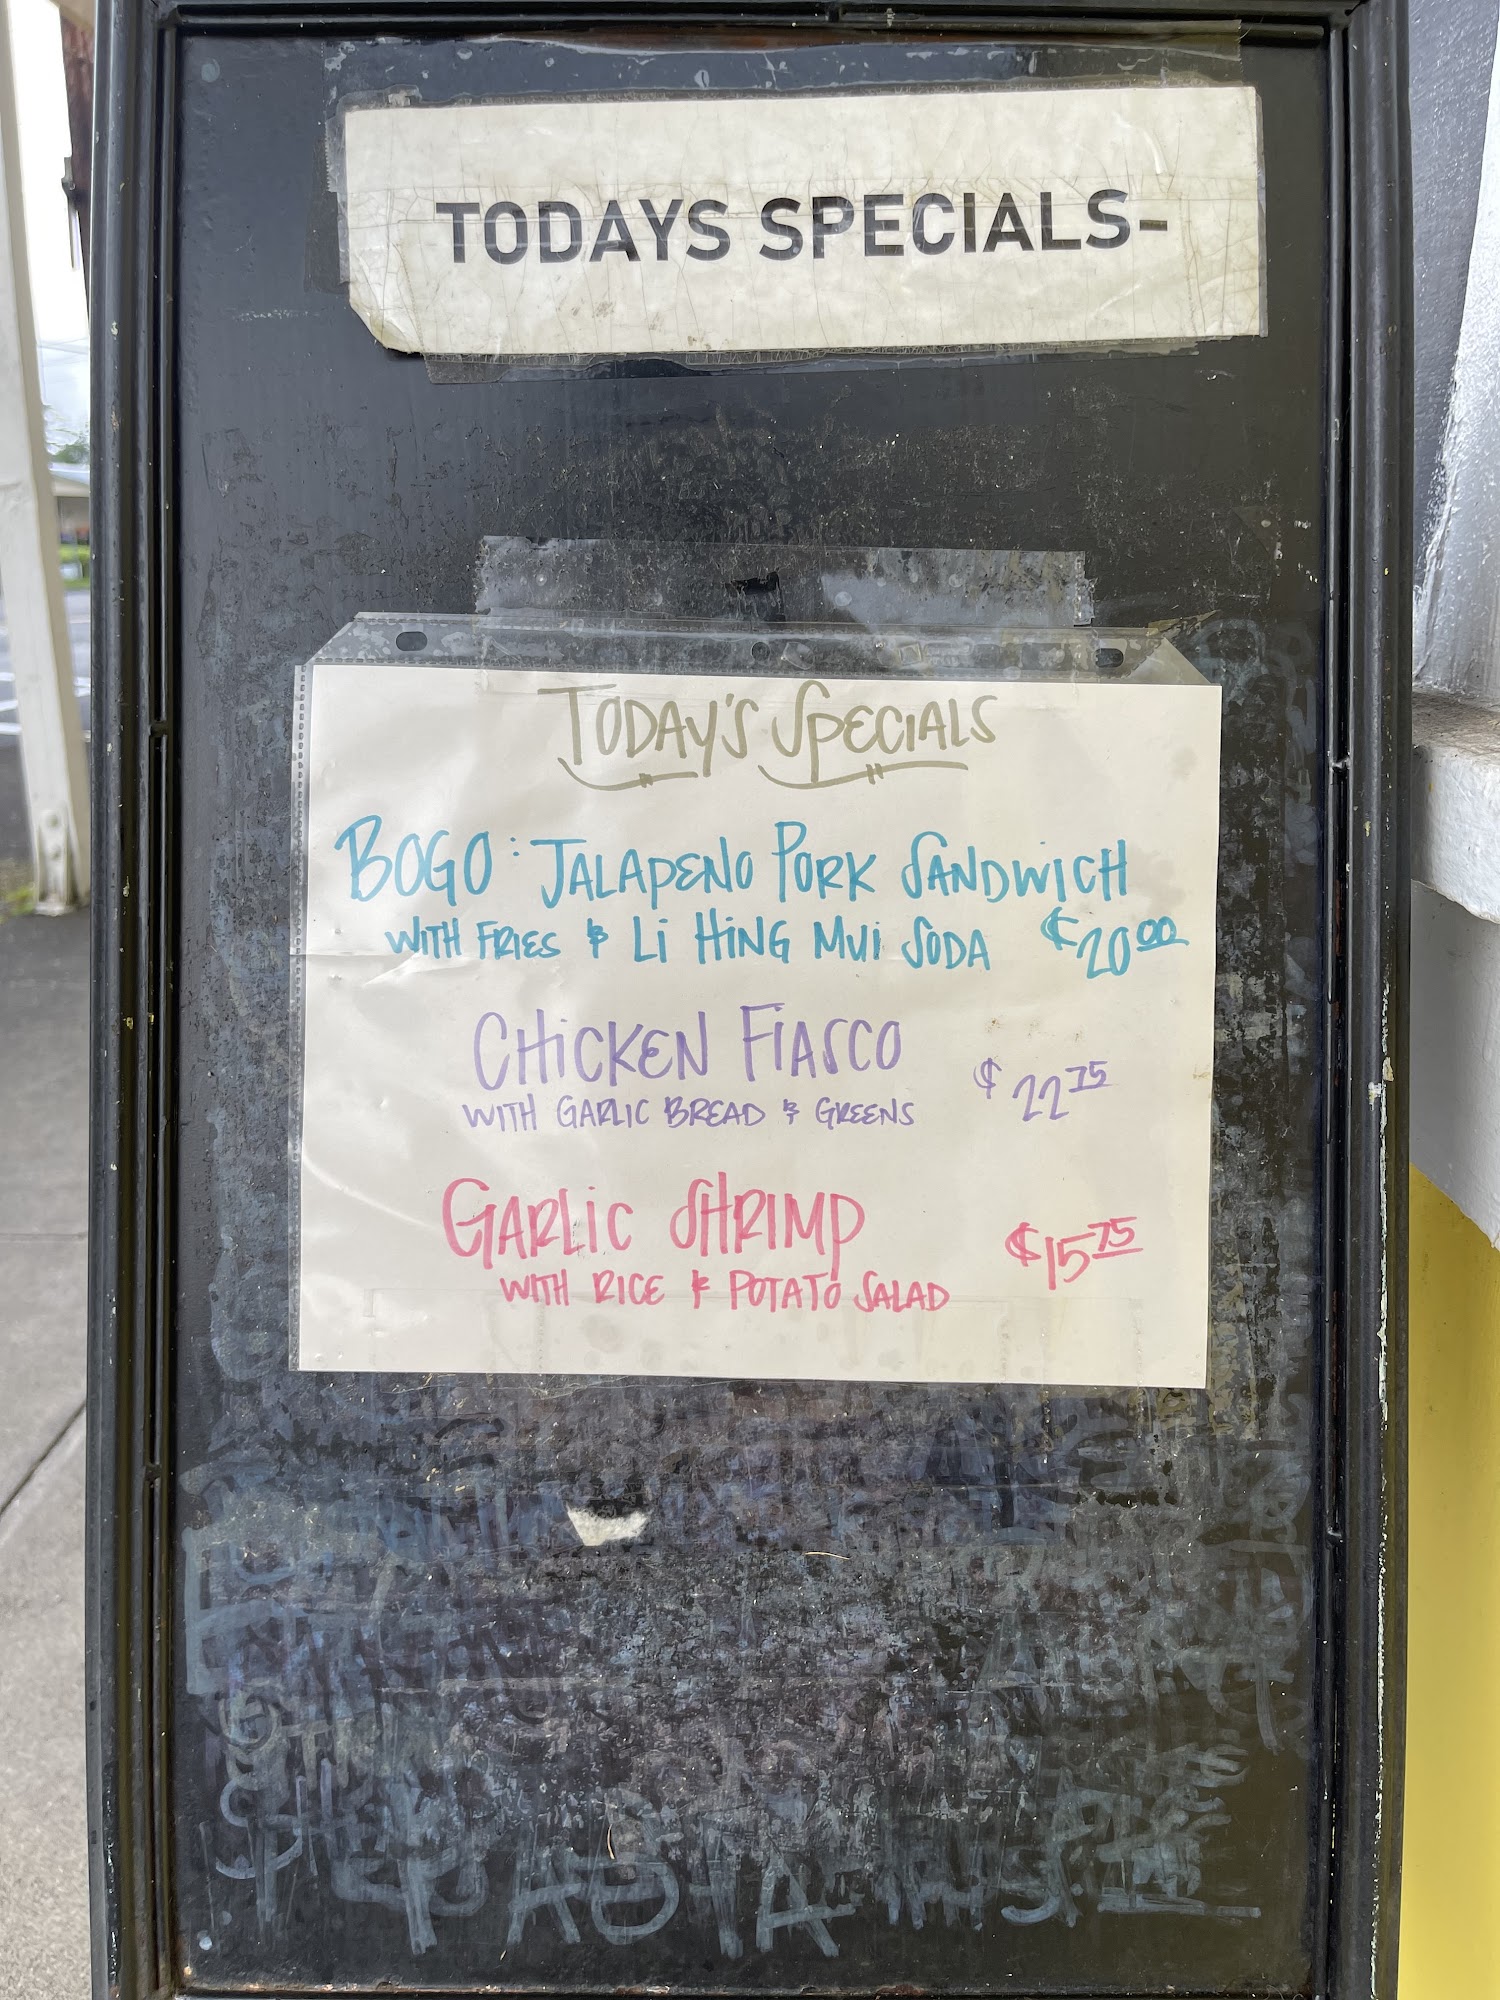 TODAYS SPECIALS-
TODAY'S SPECIALS
BOGO: JALAPENO PORK SANDWICH
WITH FRIES & LI HING MUI SODA $20.00
CHICKEN FIASCO
WITH GARLIC BREAD & GREENS $22.75
GARLIC SHRIMP
WITH RICE & POTATO SALAD $15.75